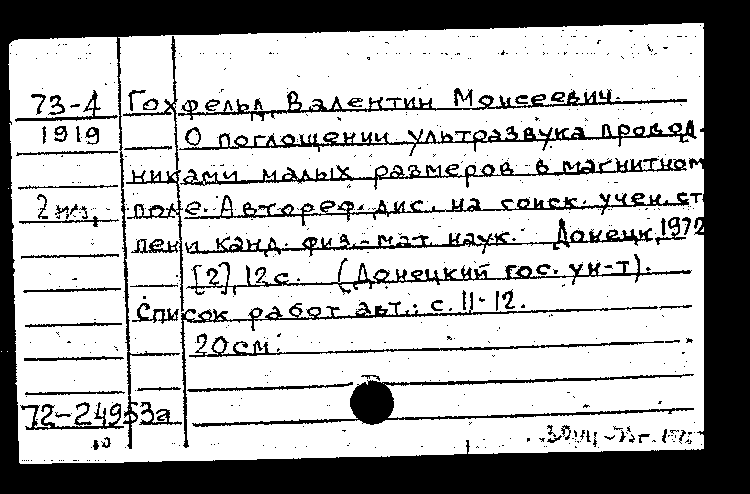 73-4 Гохфельд, Валентин Моисеевич.
1919 О поглощении ультразвука провод-
никами малых размеров в магнитном
2 экз. поле. Автореф. дис. на соиск. учен. сте
пени канд. физ.-мат. наук. Донецк, 1972
[2], 12 с. (Донецкий гос. ун-т).
Список работ авт.: с. 11-12.
20 см.
72-24953а